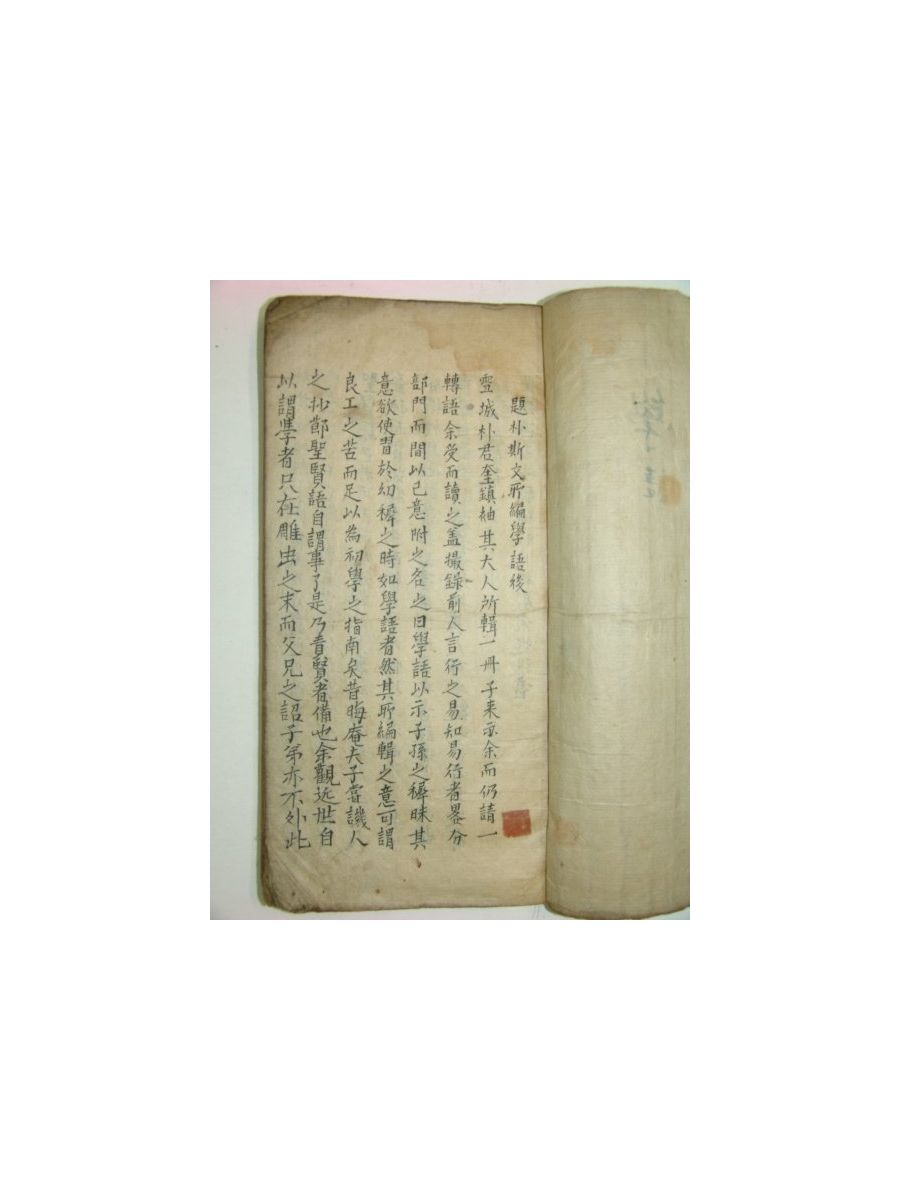 題朴斯文所編學語後
雲城朴君奎鎭袖其大人所輯一冊子来示余而仍請一
轉語余受而讀之盖撮錄前人言行之易知易行者畧分
部門而間以己意附之名之曰學語以示子孫之穉昧其
意欲使習於幼穉之時如學語者然其所編輯之意可謂
良工之苦而足以為初學之指南矣昔晦庵夫子嘗譏人
之抄節聖賢語自謂事了是乃責賢者備也余觀近世自
以謂學者只在雕虫之末而父兄之詔子弟亦不外此